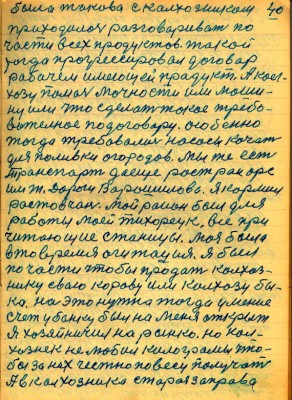 была такова с колхозником 40
приходилось разговариват по
части всех продуктов. такой
тогда прогрессировал договар
рабочем имеющей продукт. А кол-
хозу помоч мочности или маши-
ну или что сделат такое требо-
вателное подоговару. особенно
тогда требовалис насосы качат
для поливки огородов. Мы же ест
транспарт а еще
им т. Дороги Варошилова. Я кормил
ростовчан. Мой район был для
работы моей тихорецк, все при
читающие станицы. Моя была
в то время агитация. Я был
по части чтобы продат колхоз-
нику свою корову или колхозу бы-
ка, на это нужна тогда умение
счет у банку был на меня открыт
Я хозяйничил на рынке, но кол-
хозник не любил килограмы что-
бы за них честно по весу получат
А в колхозника старая заправа